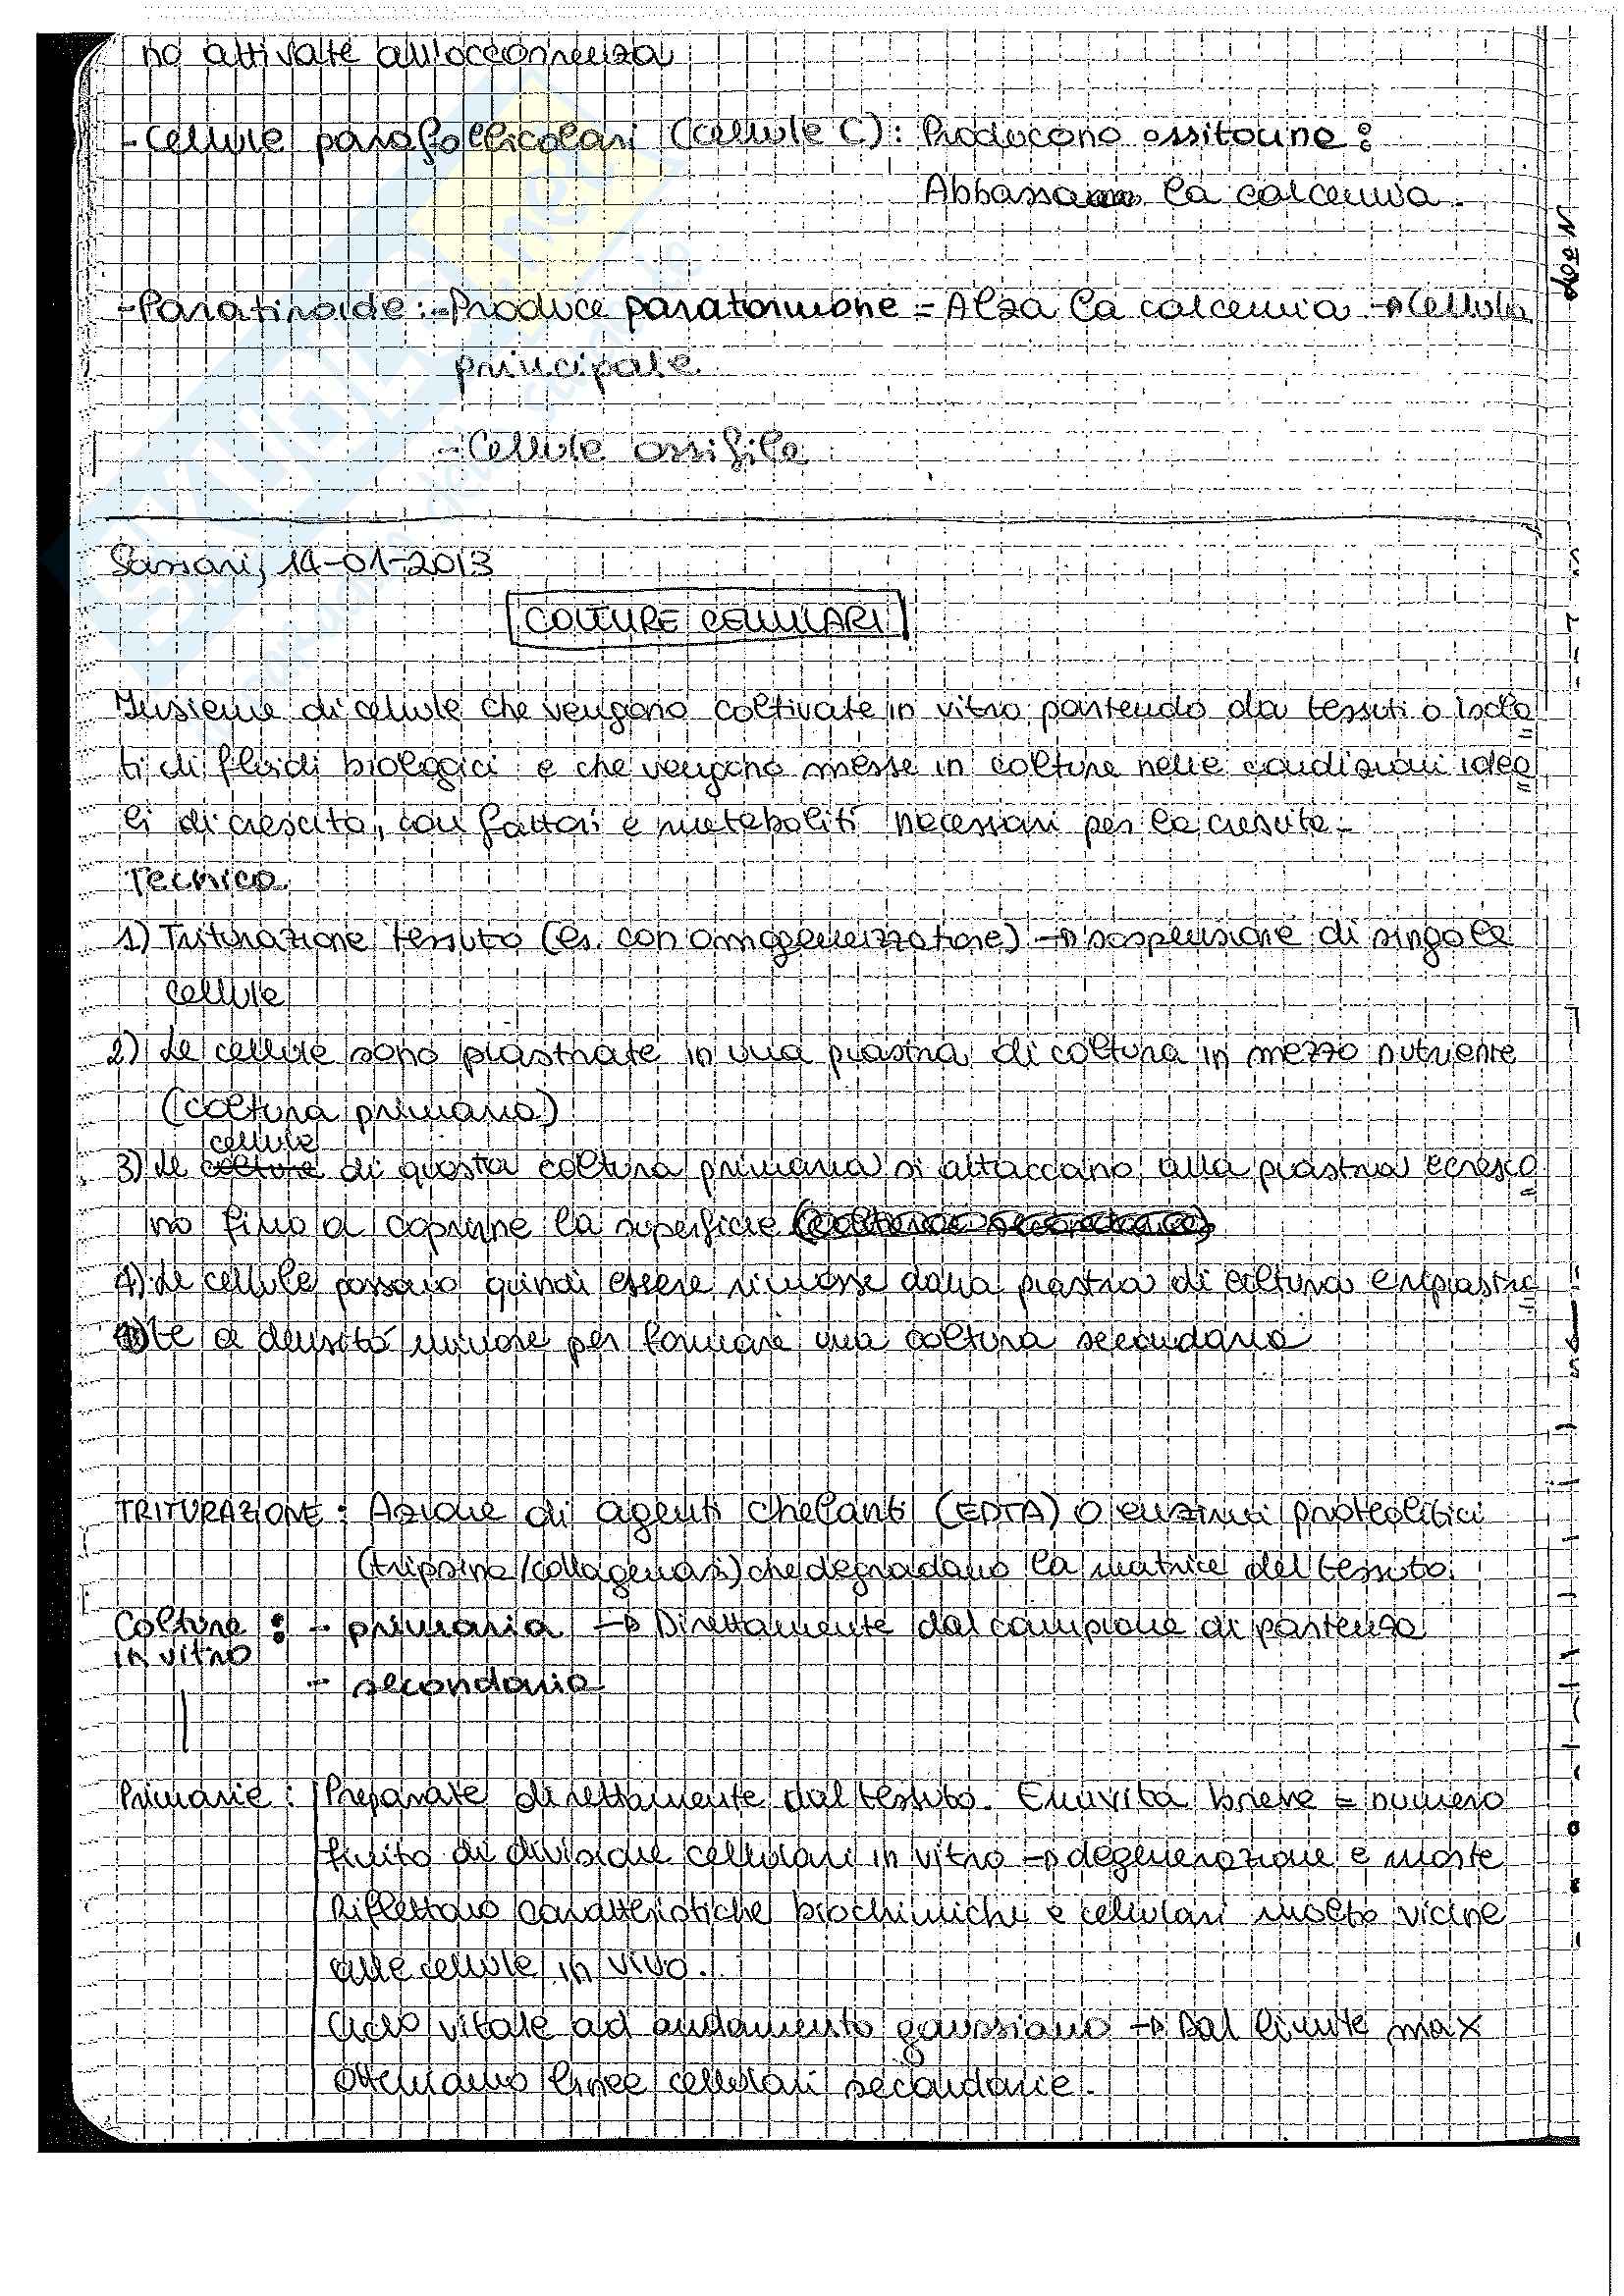 no attivate all'occorrenza
- Cellule parafollicolari (cellule C): Producono ossitocine:
Abbassano la calcemia.
- Paratiroide: - Produce paratormone = Alza la calcemia → Cellula
principale
- Cellule ossifile
Sassari, 14-01-2013
COLTURE CELLULARI
Insieme di cellule che vengono coltivate in vitro partendo da tessuti o isola
ti di fluidi biologici e che vengono messe in colture nelle condizioni idea
li di crescita, con fattori e metaboliti necessari per la crescita.
Tecnica
1) Triturazione tessuto (es. con omogeneizzatore) → sospensione di singole
cellule
2) Le cellule sono piastrate in una piastra di coltura in mezzo nutriente
(coltura primaria)
cellule
3) Le colture di questa coltura primaria si attaccano alla piastra e cresco
no fino a coprire la superficie
4) Le cellule possono quindi essere rimosse dalla piastra di coltura e ripiastra
te a densità minore per formare una coltura secondaria
TRITURAZIONE: Azione di agenti chelanti (EDTA) o enzimi proteolitici
(tripsina/collagenasi) che degradano la matrice del tessuto.
Colture : - primaria → Direttamente dal campione di partenza
in vitro
- secondaria
Primarie: Preparate direttamente dal tessuto. Emivita breve = numero
finito di divisione cellulari in vitro → degenerazione e morte
Riflettono caratteristiche biochimiche e cellulari molto vicine
alle cellule in vivo.
Ciclo vitale ad andamento gaussiano → Dal limite max
otteniamo linee cellulari secondarie.